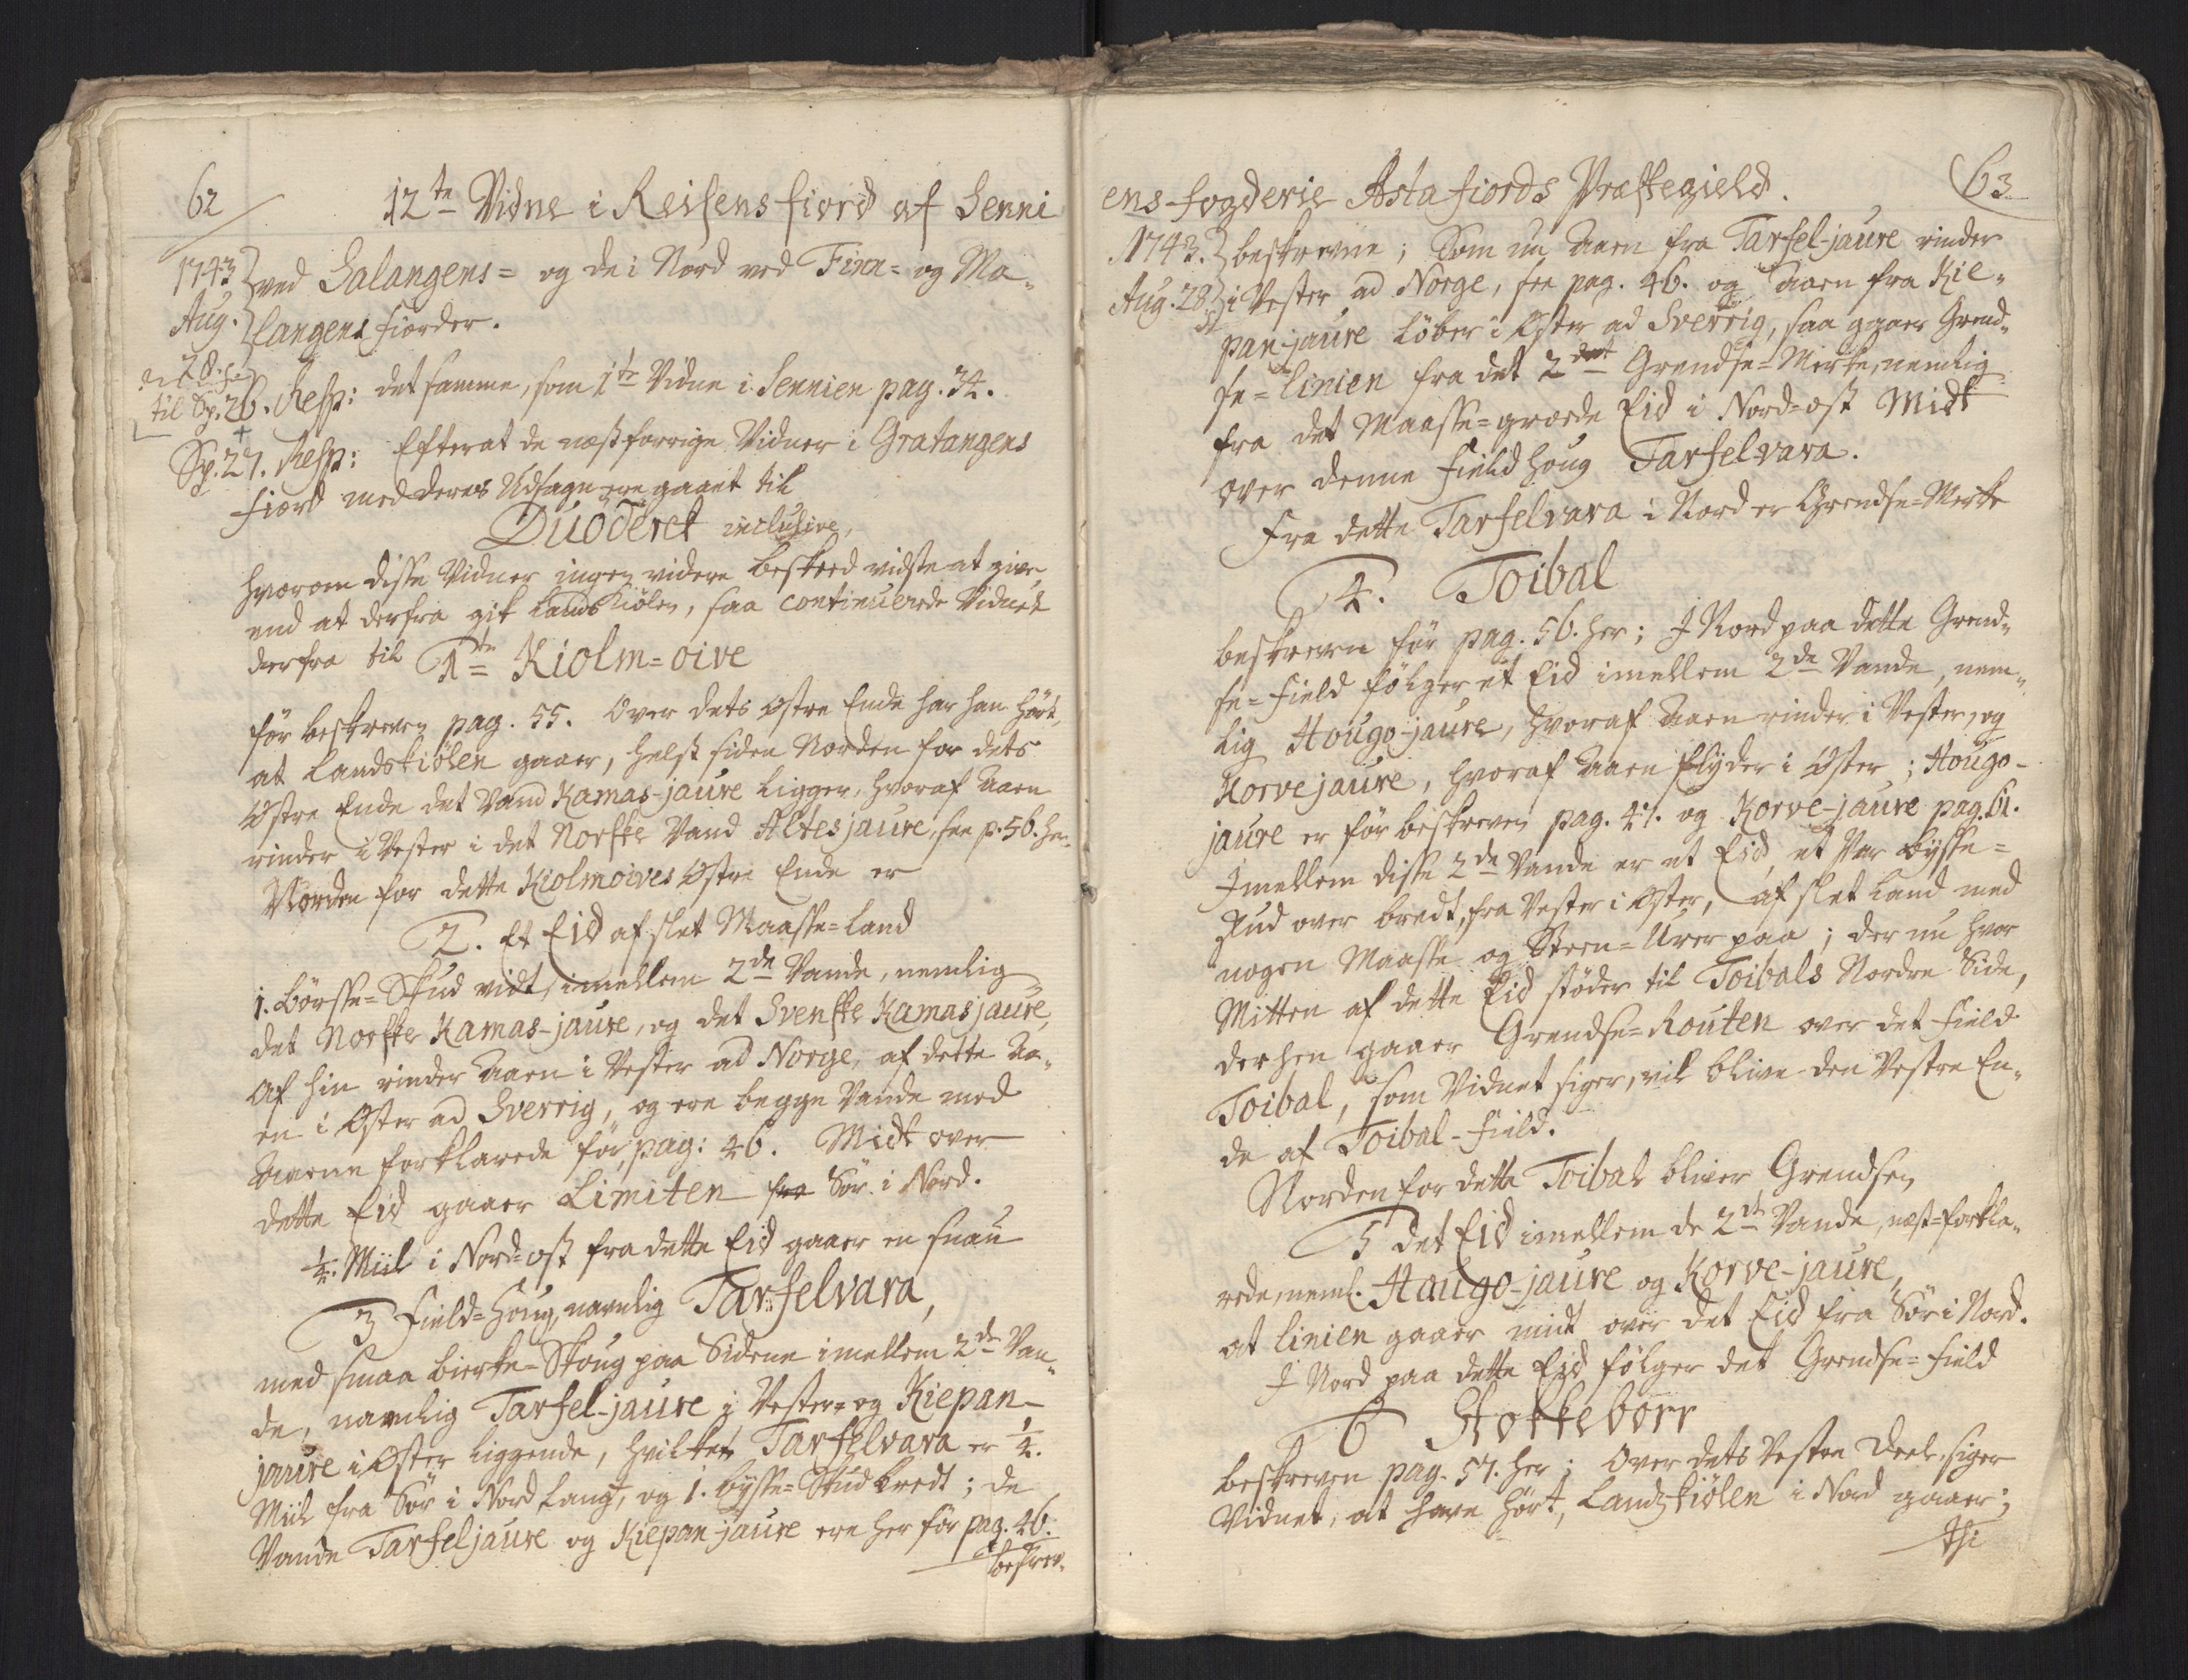 62
12te Vidne i Reisens fiord af Senni
1743 ved Salangens= og de i Nord ved Finn= og Ma-
Aug. langens fiorder.
28.
til Sp. 26. Resp: det samme, som 1te Vidne i Sennien pag. 34.
Sp. 27. Resp: Efterat de næst forrige Vidner i Gratangens
fiord med deres Udsagn ere gaaet til
Duoderet inclusive,
hvorom disse Vidner ingen videre beskeed vidste at give,
end at derfra gik Landskiölen, saa continuerede Vidnet
derfra til 1te Kiolm=oive
för beskreven pag. 55. Over dets Östre Ende har han hört,
at Landskiölen gaaer, helst siden Norden for dets
Östre Ende det Vand Kamas-jaure ligger, hvoraf Aaen
rinder i Vester i det Norske Vand Altesjaure, see p. 56. her.
Norden for dette Kiolmoives Östre Ende er
2. Et Eid af slet Maasse=land
1. Börsse=Skud vidt, imellem 2de Vande, nemlig
det Norske Kamas-jaure, og det Svenske Kamasjaure,
Af hin rinder Aaen i Vester ad Norge, af dette Aa-
en i Öster ad Sverrig, og ere begge Vande med
Aaerne forklarede för, pag: 46. Midt over
dette Eid gaaer Limiten fra Sör i Nord.
1/4. Miil i Nord=ost fra dette Eid gaaer en snau
3 Field=Houg, navnlig Tarfelvara,
med smaa bierke=Skoug paa Siderne imellem 2de Van-
de, navnlig Tarfel-jaure i Vester= og Kiepan-
jaure i Öster liggende, hvilket Tarfelvara er 1/4.
Miil fra Sör i Nord langt, og 1. bysse=Skud bredt; de
Vande Tarfeljaure og Kiepanjaure ere her för pag. 46.
beskrev-
63
ens fogderie Astafiords Præstegield.
1743. beskrevne; Som nu Aaen fra Tarfel-jaure rinder
Aug. 28 i Vester ad Norge, see pag. 46. og Aaen fra Kie-
panjaure löber i Öster ad Sverrig, saa gaaer Grend-
se=linien fra det 2det Grendse=Merke, nemlig
fra det Maasse=groede Eid i Nord=ost Midt
over denne Field houg Tarfelvara.
Fra dette Tarfelvara i Nord er Grendse=Merke
4. Toibal
beskreven för pag. 56. her; I Nord paa dette Grend-
se=Field fölger et Eid imellem 2de Vande, nem-
lig Hougo-jaure, hvoraf Aaen rinder i Vester, og
Korvejaure, hvoraf Aaen flyder i Öster; Hougo-
jaure er för beskreven pag. 47. og Korve-jaure pag. 61.
Imellem disse 2de Vande er et Eid et Par bysse=
skud over bredt, fra Vester i Öster, af slet land med
nogen Maasse og Steen=Urer paa; der nu hvor
Mitten af dette Eid stöder til Toibals Nordre Side,
derhen gaaer Grendse=Routen over det Field
Toibal, som Vidnet siger, vil blive den Vestre En-
de af Toibal-Field.
Norden for dette Toibal bliver Grendsen
5 det Eid imellem de 2de Vande næst=forkla-
rede, neml. Haugo-jaure og Korve-jaure,
at linien gaaer midt over det Eid fra Sör i Nord.
I Nord paa dette Eid fölger det Grendse=Field
6 Stokkeborr
beskreven pag. 57. her; Over dets Vestre Deel, siger
Vidnet, at have hört, Landskiölen i Nord gaaer;
thi